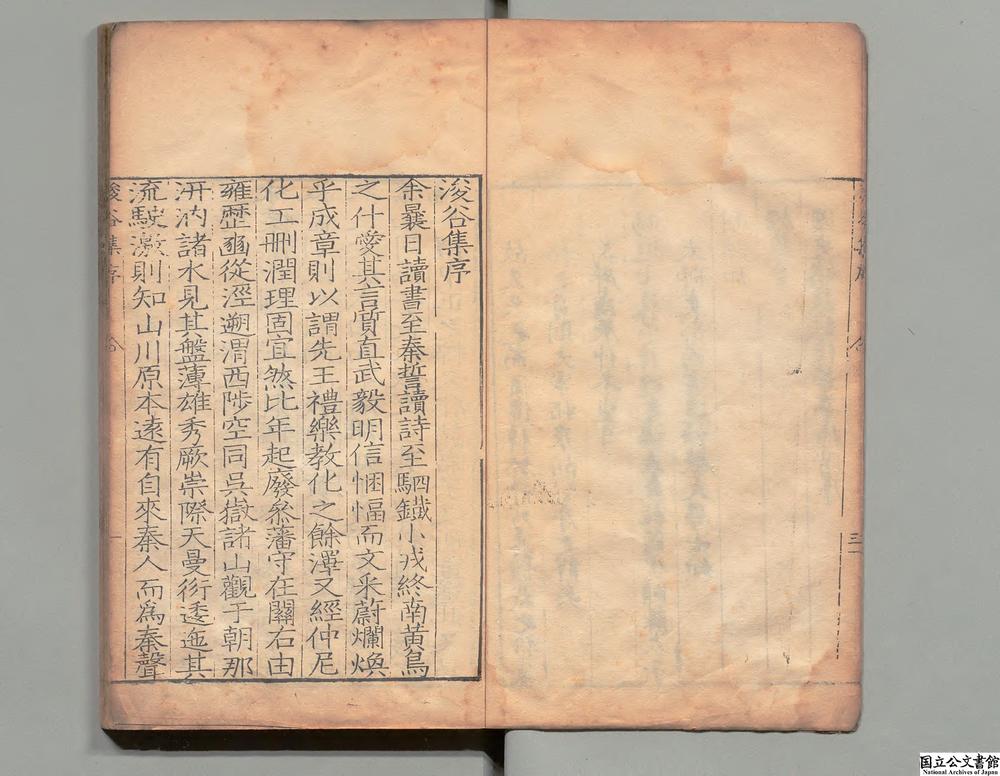 浚谷集序
余曩日讀書至秦誓讀詩至駟鐵小戎終南黃鳥
之什愛其言質直武毅明信悃愊而文采蔚爛煥
乎成章則以謂先王禮樂教化之餘澤又經仲尼
化工刪潤理固宜然比年起廢叅藩守在關右由
雍歷豳從涇遡渭西陟空同吳嶽諸山觀于朝那
汧汭諸水見其盤薄雄秀厥崇際天曼衍透迤其
流駛激則知山川原本遠有自來秦人而為秦聲
浚谷集序
一
国立公文書館
National Archives of Japan